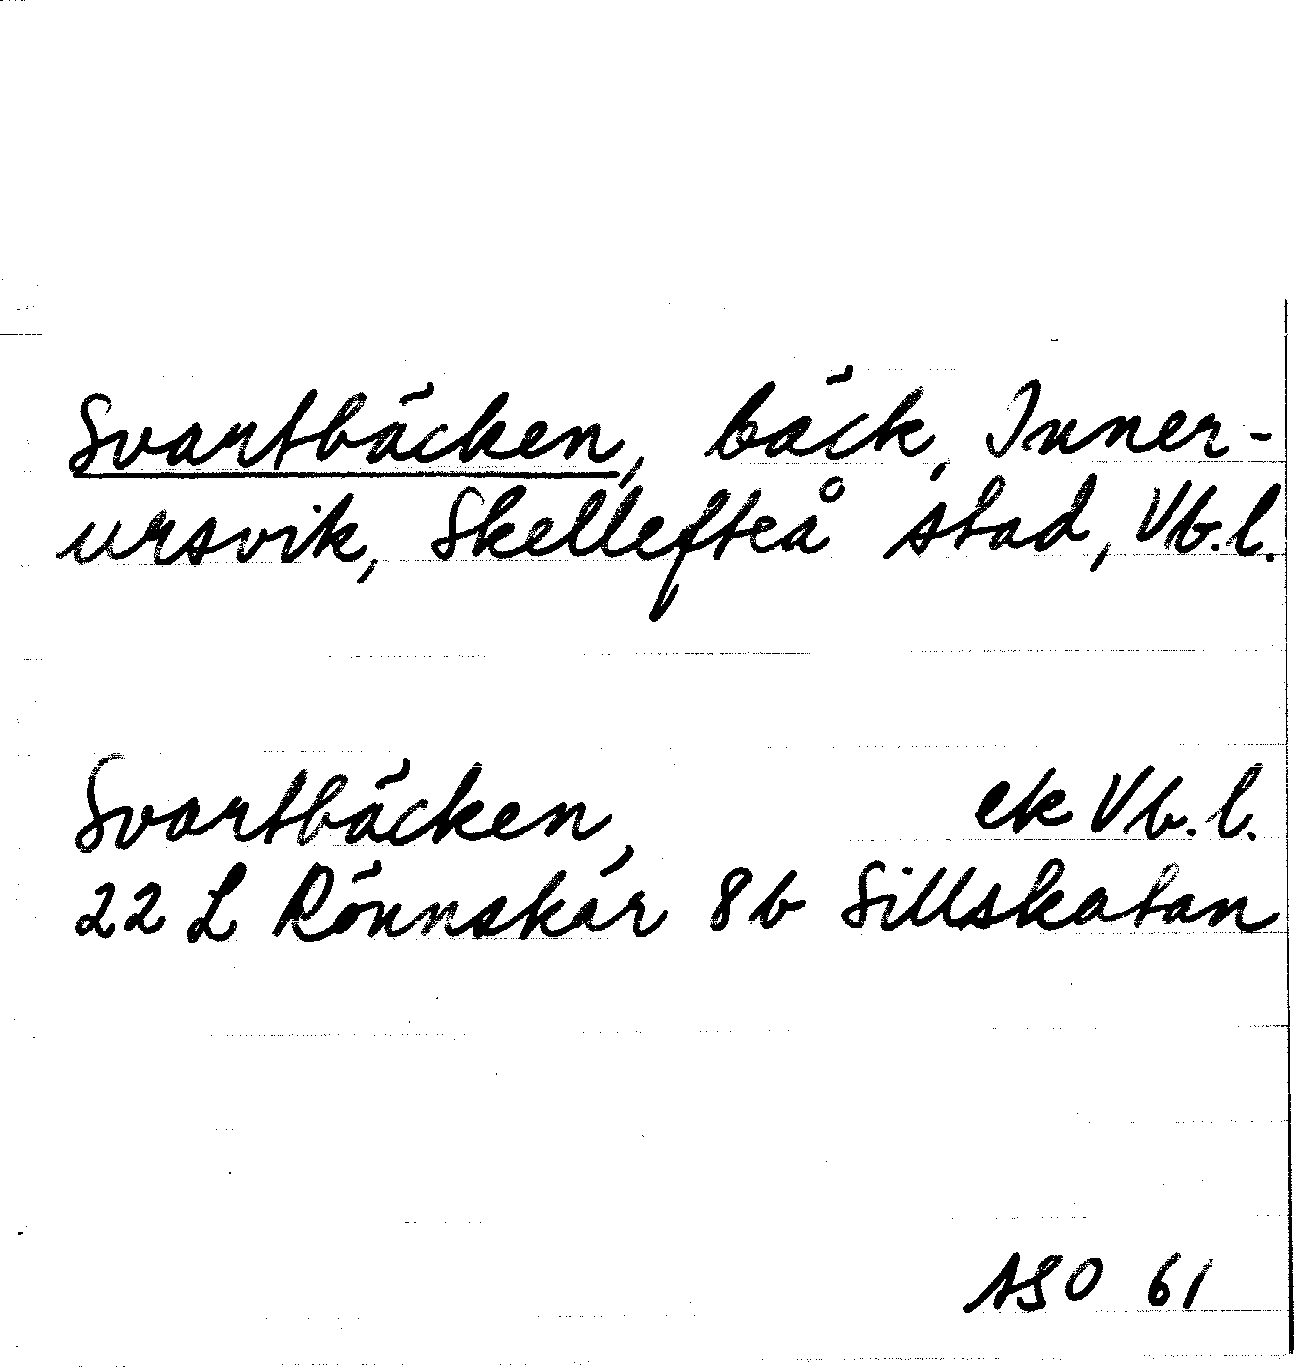 Svartbäcken, bäck, Inner-
ursvik, Skellefteå stad, Vb.l.
Svartbäcken, ek Vb.l.
22 L Rönnskär 8b Sillskatan
ASO 61